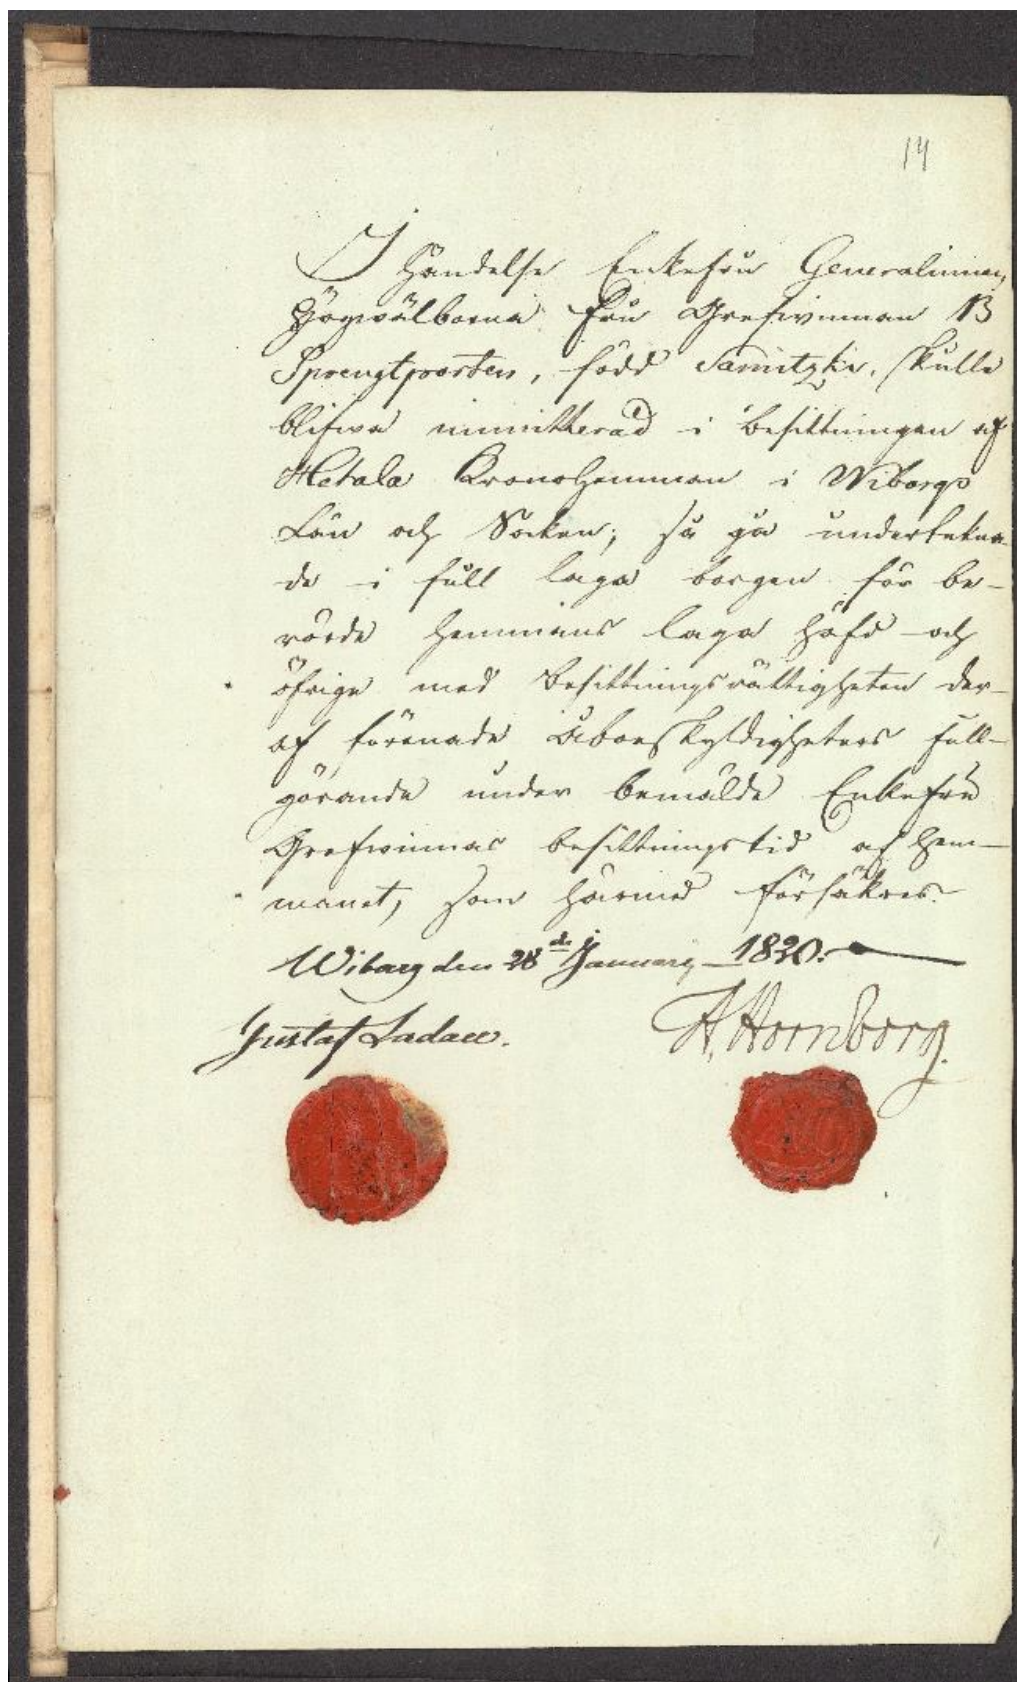 14
I Händelse Enkefru Generalinnan,
Högwälborna Fru Grefwinnan B
Sprengtporten, född Sarnitzki, skulle
blifwa immitterad i besittningen af
Hetala Kronohemman i Wiborgs
Län och Socken; så gå underteckna-
de i full laga borgen för be-
rörde hemmans laga häfd och
öfrige med besittningsrättigheten der-
af förenade Åboeskyldigheters full-
görande under bemälde Enkefru
Grefwinnas besittningstid af hem-
manet, som härmed försäkras.
Wiborg den 28de January 1820.
Gustaf Ladau. H. Hornborg.